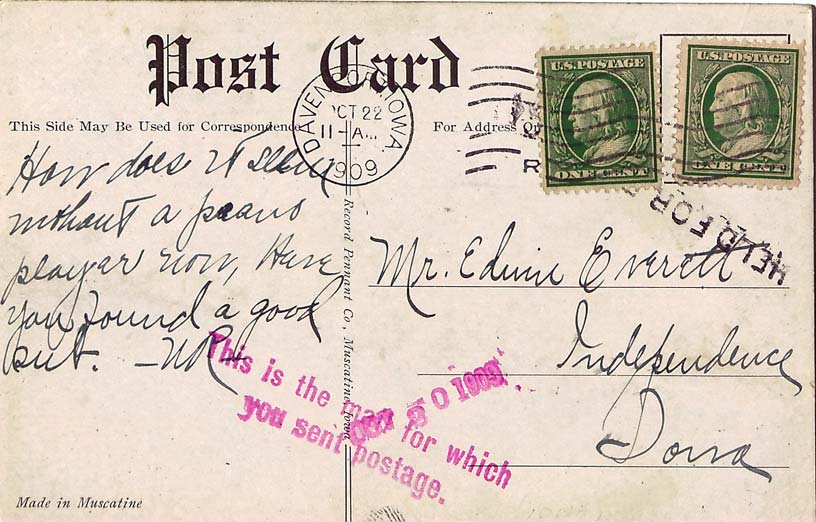 Post Card
This Side May Be Used for Correspondence
For Address
DAVENPORT, IOWA
OCT 22
11-AM
1909
U.S. POSTAGE
ONE CENT
U.S. POSTAGE
ONE CENT
HELD FOR
How does it seem
without a piano
player now, Have
you found a good
out. -
Mr. Edwin Everett
Independence
Iowa
Record Pennant Co., Muscatine, Iowa
This is the mail for which
you sent postage.
OCT 30 1909
Made in Muscatine